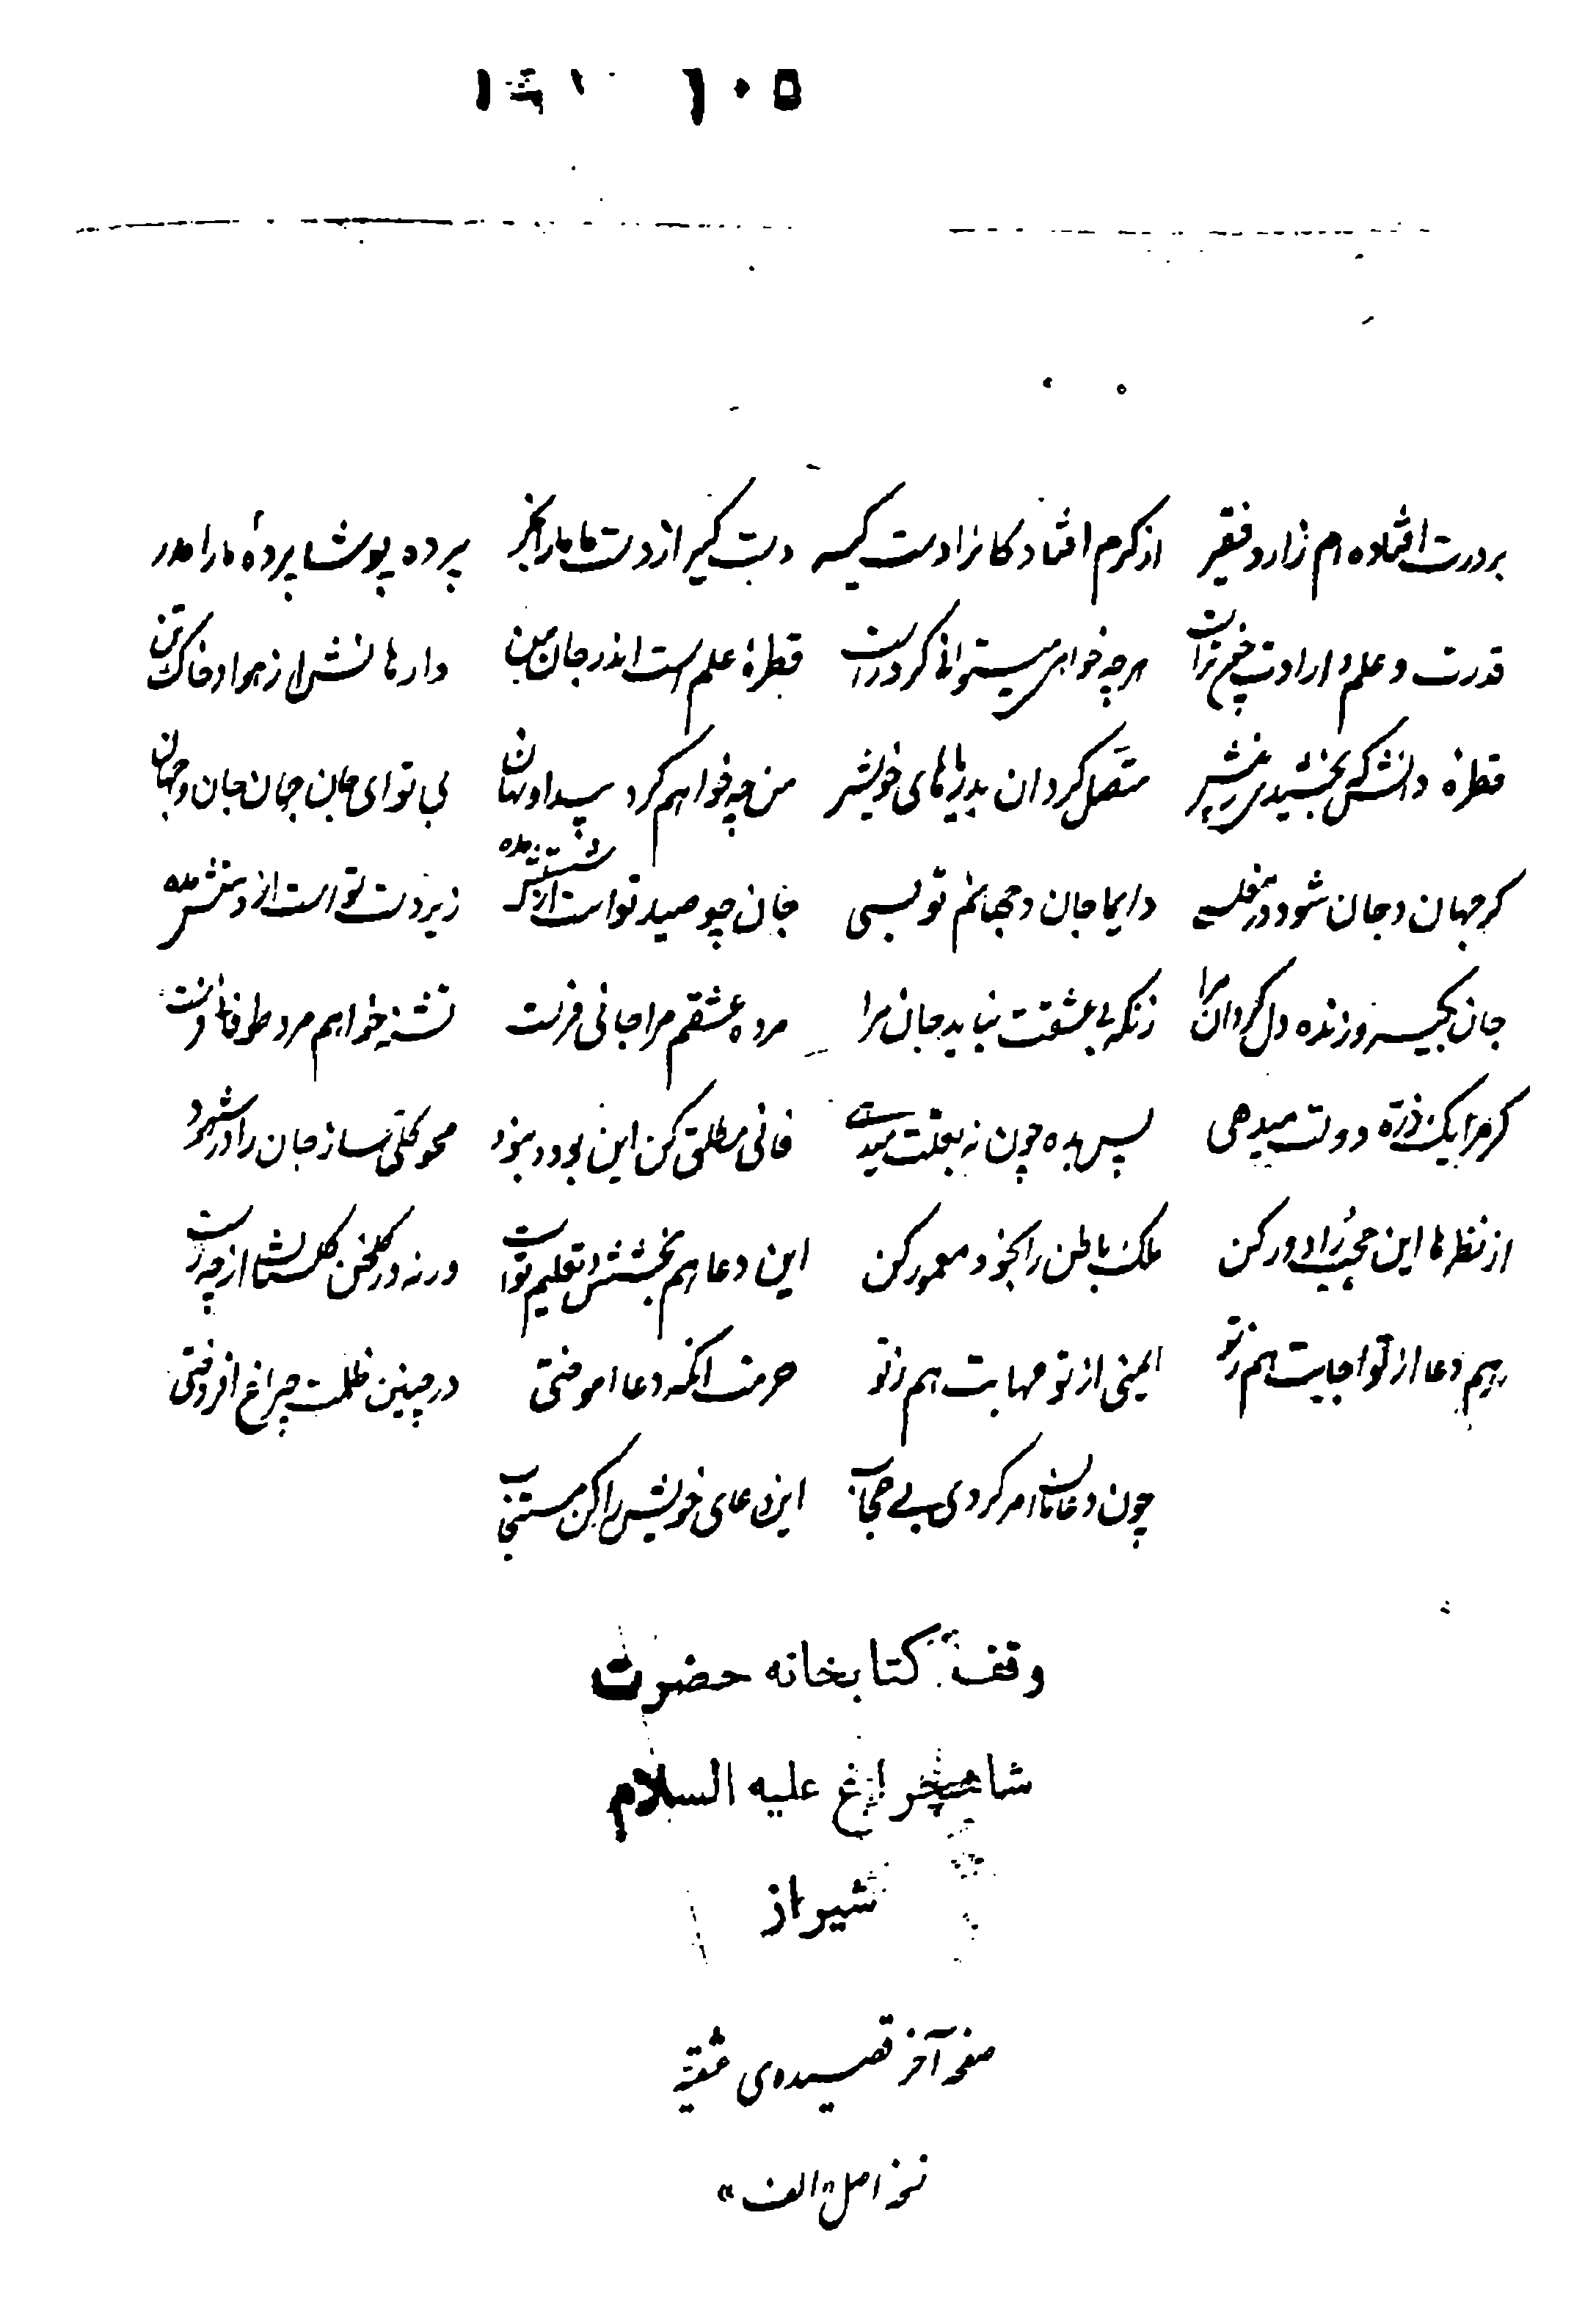 ۱۰۵
بر درت افتاده ام زار و فقیر از کرم افتادکانرا دست کیر دست کیر از دست ما ما را بخر پرده پوشا پردهٔ ما را مدر
قدرت و علم و ارادت هر چه خواهی میتوانی کرد راست قطرهٔ علم است اندر جان من وارهانش از هوا و خاک تن
قطرهٔ دانش که بخشیدی ز پیش متصل کردان بدریاهای خویش من چه خواهم کرد پیدا و نهان بی تو ای جان جهان جان و جهان
کر جهان و جان شود در مفلسی دایما جان و جهانم تو بسی جان چو صید تو است زیر دست تو است از دستش مده
جان بکیر و زنده دل کردان مرا زنکه بی عشقت نباید جان مرا مرده عشقم مرا جانی فرست تشنه خواهم مرد طوفانی فرست
کر مرا یک ذره دولت میدهی پس بده چون نه بعلت میدهی فانی مطلق کن این بود و نبود محو کلی ساز جان را در شهود
از نظرها این حجب را دور کن ملک باطن را بخود معمور کن این دعا هم بخشش و تعلیم تو است ورنه در کلخن کلستان از چه رست
هم دعا از تو اجابت هم ز تو ایمنی از تو مهابت هم ز تو حرمت انکه دعا اموختی در چنین ظلمت چراغ افروختی
چون دعامان امر کردی بی حجاب این دعای خویش را کن مستجاب
وقف کتابخانه حضرت
شاهچراغ علیه السلام
شیراز
صفحه آخر قصیده‌ی عشقیه
نسخه اصل «الف»